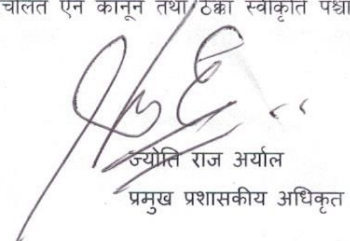 चलित एन कानून तथा ठेक्का स्वीकृति पश्चा
ज्योति राज अर्याल
प्रमुख प्रशासकीय अधिकृत